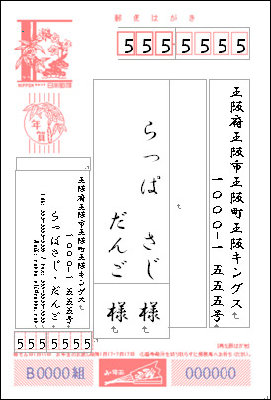 郵便はがき
NIPPON
日本郵便
年賀
555-5555
正阪府正阪市正阪町正阪キングス
一〇〇〇ー一 五五五号
らっぱ さじ 様
だんご 様
正阪府正阪市正阪町正阪キングス
一〇〇〇ー一 五五五号
らっぱさじ・だんご
5555555
B0000組
お年玉
000000